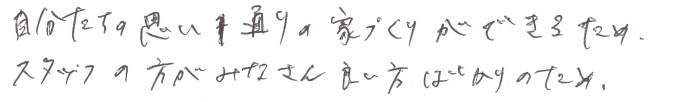 自分たちの思い通りの家づくりができるため.
スタッフの方がみなさん良い方ばかりのため.